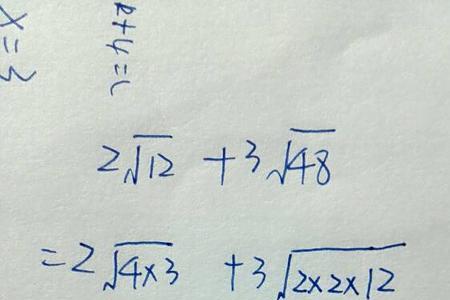 x=3
2√12 +3√48
=2√4×3 +3√2×2×12